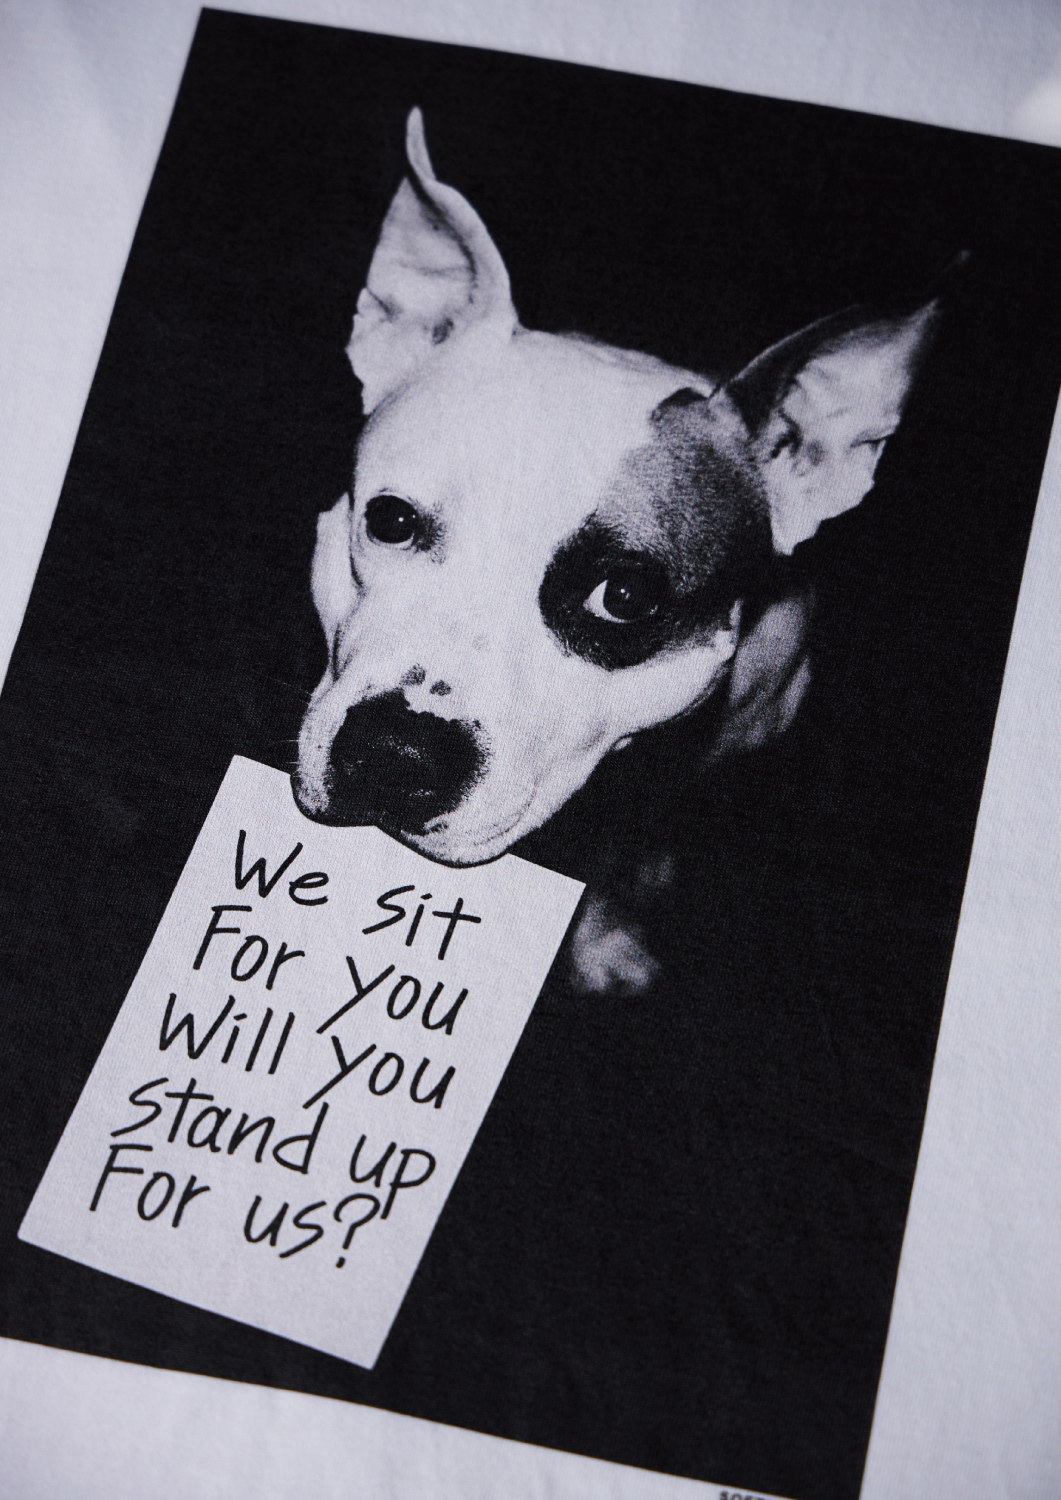 We sit
For you
Will you
stand up
For us?